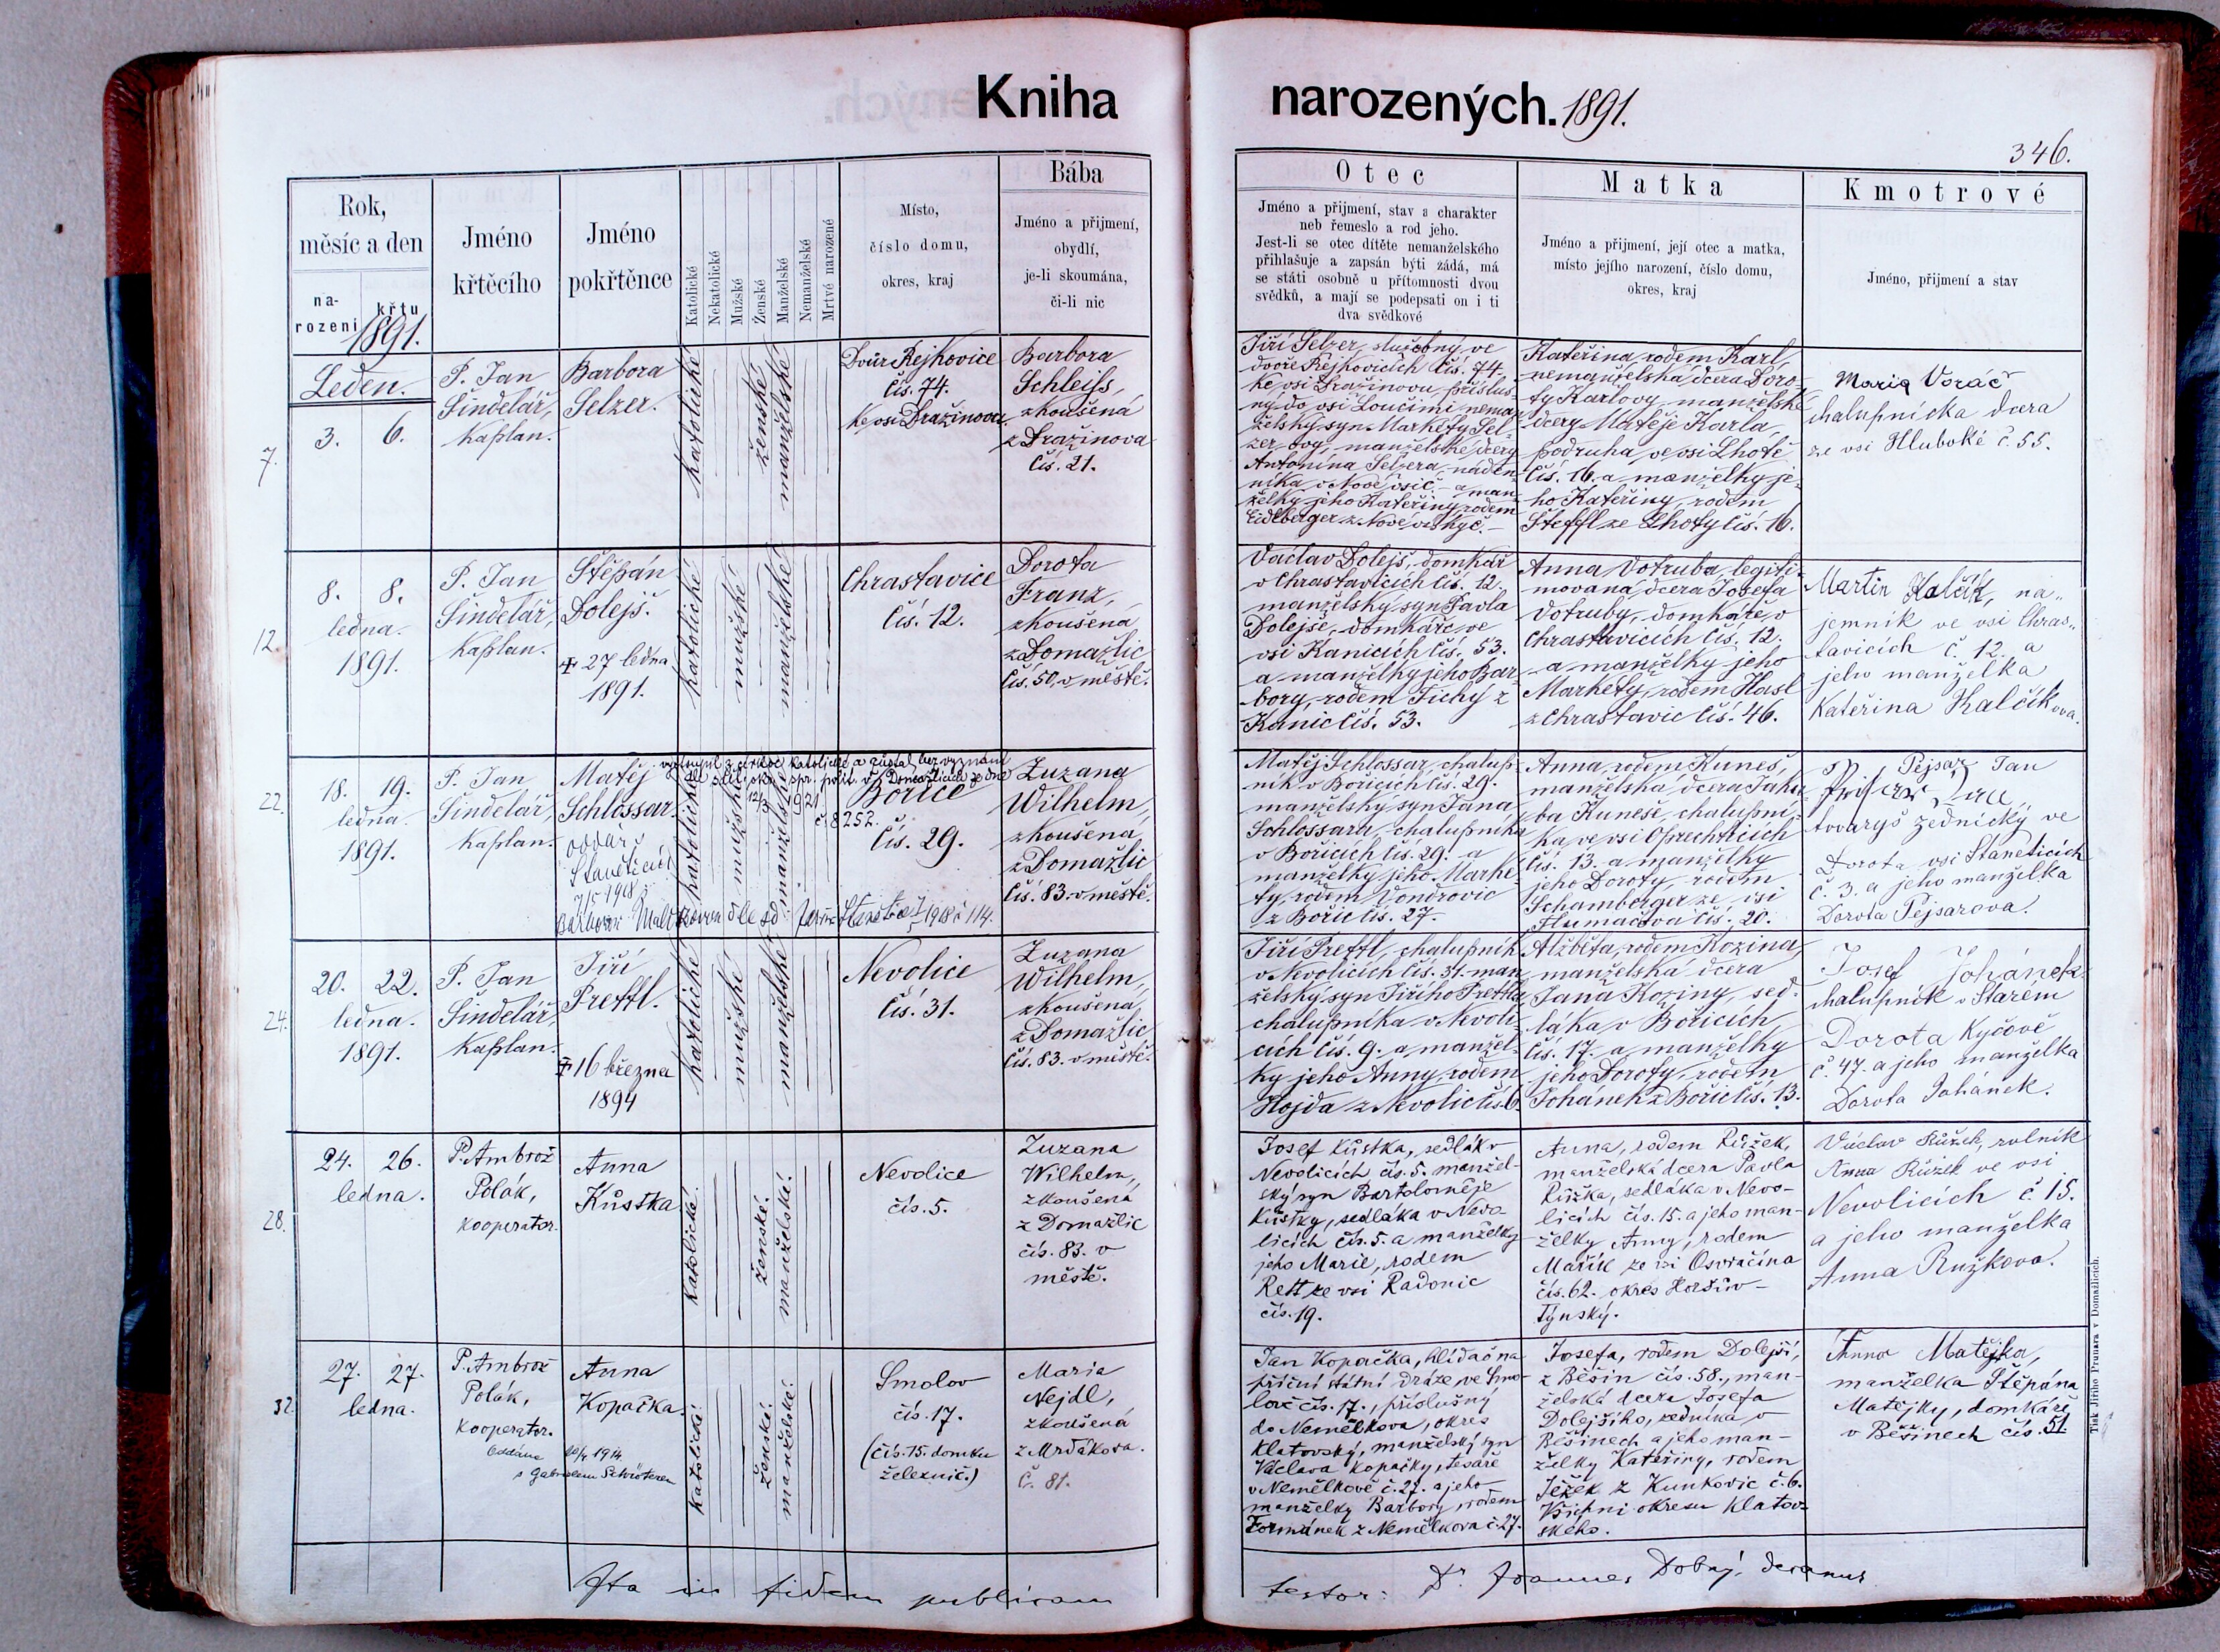 Kniha narozených. 1891.
346.
Rok, měsíc a den
na-
rození
křtu
1891.
Jméno
křtěcího
Jméno
pokřtěnce
Katolické
Nekatolické
Mužské
Ženské
Manželské
Nemanželské
Mrtvě narozené
Místo,
číslo domu,
okres, kraj
Bába
Jméno a přijmení,
obydlí,
je-li skoumána,
či-li nic
Otec
Jméno a přijmení, stav a charakter
neb řemeslo a rod jeho.
Jest-li se otec dítěte nemanželského
přihlašuje a zapsán býti žádá, má
se státi osobně u přítomnosti dvou
svědků, a mají se podepsati on i ti
dva svědkové
Matka
Jméno a přijmení, její otec a matka,
místo jejího narození, číslo domu,
okres, kraj
Kmotrové
Jméno, přijmení a stav
7.
Leden.
3. 6.
P. Jan
Šindelář,
kaplan.
Barbora
Selzer.
katolické
ženské
manželské
Dvůr Rejkovice
čís. 74.
ke vsi Dražinovu.
Barbora
Schleiss,
zkoušená
z Dražinova
čís. 21.
Jiří Selzer, služebný ve
dvoře Rejkovicích čís. 74.
ke vsi Dražinovu, přísluš-
ný do vsi Loučimi, neman-
želský syn Markéty Sel-
zer-ovy, manželské dcery
Antonína Selzera, náden-
níka v Nové vsi č. – a man-
želky jeho Kateřiny, rodem
Eidlberger z Nové vsi č. –
Kateřina, rodem Karl,
nemanželská dcera Doro-
ty Karlovy, manželské
dcery Matěje Karla,
podruha ve vsi Lhotě
čís. 16. a manželky je-
ho Kateřiny, rodem
Steffl ze Lhoty čís. 16.
Maria Voráč
chalupnicka dcera
ze vsi Hluboké č. 55.
12.
8. 8.
ledna.
1891.
P. Jan
Šindelář,
kaplan.
Štěpán
Dolejš.
27 ledna
1891.
katolické
mužské
manželské
Chrastavice
čís. 12.
Dorota
Franz,
zkoušená
z Domažlic
čís. 50, v městě.
Václav Dolejš, domkář
v Chrastavicích čís. 12.
manželský syn Pavla
Dolejše, domkáře ve
vsi Kanicích čís. 53.
a manželky jeho Bar-
bory, rodem Tichý z
Kanic čís. 53.
Anna Votruba, legiti-
movaná dcera Josefa
Votruby, domkáře v
Chrastavicích čís. 12.
a manželky jeho
Markéty, rodem Hasl
z Chrastavic čís. 46.
Martin Kalčík, na-
jemník ve vsi Chras-
tavicích č. 12. a
jeho manželka
Kateřina Kalčíkova.
22.
18. 19.
ledna.
1891.
P. Jan
Šindelář,
kaplan.
Matěj
Schlossar.
vystoupil z církve katolické a zůstal bez vyznání
dle spr. polit. v Domažlicích ze dne
12/3 1921
č. 8252.
oddán v
Staněticích
1918 s
Barborou
katolické
mužské
manželské
Bořice
čís. 29.
Zuzana
Wilhelm,
zkoušená,
z Domažlic
čís. 83. v městě.
Matěj Schlossar, chalup-
ník v Bořicích čís. 29.
manželský syn Jana
Schlossara, chalupníka
v Bořicích čís. 29. a
manželky jeho Marké-
ty, rodem Vondrovic
z Bořic čís. 27.
Anna, rodem Kuneš,
manželská dcera Jaku-
ba Kuneše, chalupní-
ka ve vsi Oprechticích
čís. 13. a manželky
jeho Doroty, rodem
Schamberger ze vsi
Tlumačova čís. 20.
Pejsar Jan
tovaryš zednický ve
Dorota vsi Staněticích
č. 3. a jeho manželka
Dorota Pejsarova.
24.
20. 22.
ledna.
1891.
P. Jan
Šindelář,
kaplan.
Jiří
Preffl.
16 března
1894
katolické
mužské
manželské
Nevolice
čís. 31.
Zuzana
Wilhelm,
zkoušená,
z Domažlic
čís. 83. v městě.
Jiří Preffl, chalupník
v Nevolicích čís. 31. man-
želský syn Jiřího Preffla,
chalupníka v Nevoli-
cích čís. 9. a manžel-
ky jeho Anny, rodem
Hojda z Nevolic čís. 6.
Alžběta, rodem Kozina,
manželská dcera
Jana Koziny, sed-
láka v Bořicích
čís. 17. a manželky
jeho Doroty, rodem
Johánek z Bořic čís. 13.
Josef Johánek
chalupník v Starém
Dorota Kyčově
č. 47. a jeho manželka
Dorota Johánek.
28.
24. 26.
ledna.
P. Ambrož
Polák,
kooperator.
Anna
Kůstka
katolické.
ženské.
manželské.
Nevolice
čís. 5.
Zuzana
Wilhelm,
zkoušená
z Domažlic
čís. 83. v
městě.
Josef Kůstka, sedlák v
Nevolicích čís. 5. manžel-
ský syn Bartoloměje
Kůstky, sedláka v Nevo-
licích čís. 5. a manželky
jeho Marie, rodem
Rett ze vsi Radonic
čís. 19.
Anna, rodem Růžek,
manželská dcera Pavla
Růžka, sedláka v Nevo-
licích čís. 15. a jeho man-
želky Anny, rodem
Mařík ze vsi Osvračína
čís. 62. okres Horšův-
Týnský.
Václav Růžek, rolník
Anna Růžek ve vsi
Nevolicích č. 15.
a jeho manželka
Anna Růžkova.
32.
27. 27.
ledna.
P. Ambrož
Polák,
kooperator.
Anna
Kopačka.
Oddána 1914
s Gabrielem
katolické
ženské.
manželské.
Smolov
čís. 17.
(čís. 15. domku
železnič.)
Maria
Nejdl,
zkoušená
z Mrdákova.
č. 81.
Jan Kopačka, hlídač na
příční státní dráze ve Smo-
lově čís. 17., příslušný
do Nemělkova, okres
Klatovský, manželský syn
Václava Kopačky, tesaře
v Nemělkově č. 27. a jeho
manželky Barbory, rodem
Formánek z Nemělkova č. 27.
Josefa, rodem Dolejší,
z Běšin čís. 58., man-
želská dcera Josefa
Dolejšího, zedníka v
Běšinech a jeho man-
želky Kateřiny, rodem
Ježek z Kunkovic č. 6.
Všichni okresu Klatov-
ského.
Anna Matějka,
manželka Štěpána
Matějky, domkáře
v Běšinech čís. 51.
Ita in fidem publicam testor: Dr. Joannes decanus
Tisk Jiřího Prunara v Domažlicích.